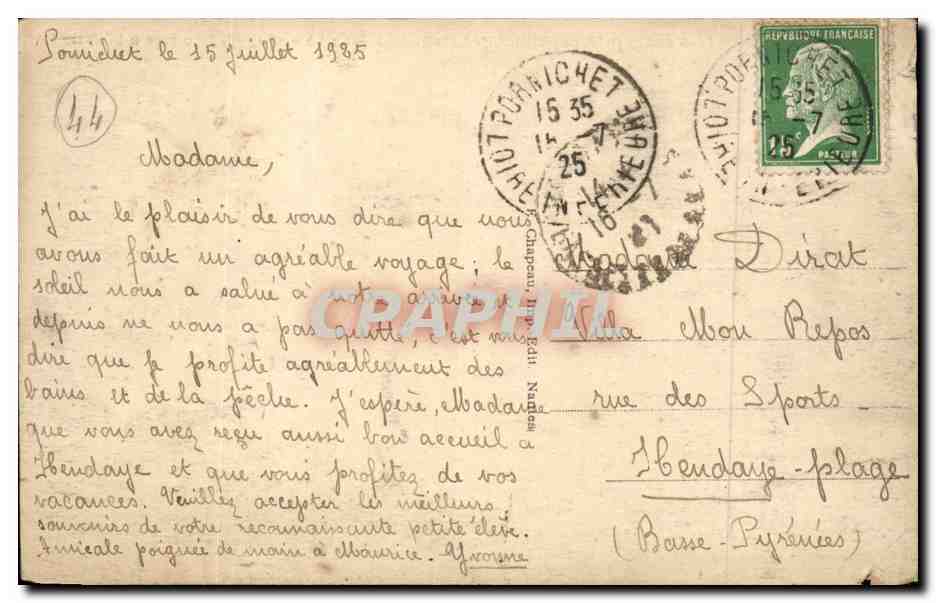 Pornichet le 15 Juillet 1925
44
Madame,
J'ai le plaisir de vous dire que nous
avons fait un agréable voyage ; le
soleil nous a salué à notre arrivée et
depuis ne nous a pas quitté, c'est vous
dire que je profite agréablement des
bains et de la pêche. J'espère, Madame
que vous avez reçu aussi bon accueil à
Hendaye et que vous profitez de vos
vacances. Veuillez accepter les meilleurs
souvenirs de votre reconnaissante petite élève.
Amicale poignée de main à Maurice. Yvonne
Chapeau, Imp. Edit. Nantes
PORNICHET
15 35
15 -7
25
LOIRE INFERIEURE
16
RÉPUBLIQUE FRANÇAISE
PASTEUR
PORNICHET
15 35
-7
25
Madame Dirat
Villa Mon Repos
rue des Sports
Hendaye-plage
(Basse-Pyrénées)
CRAPHIL